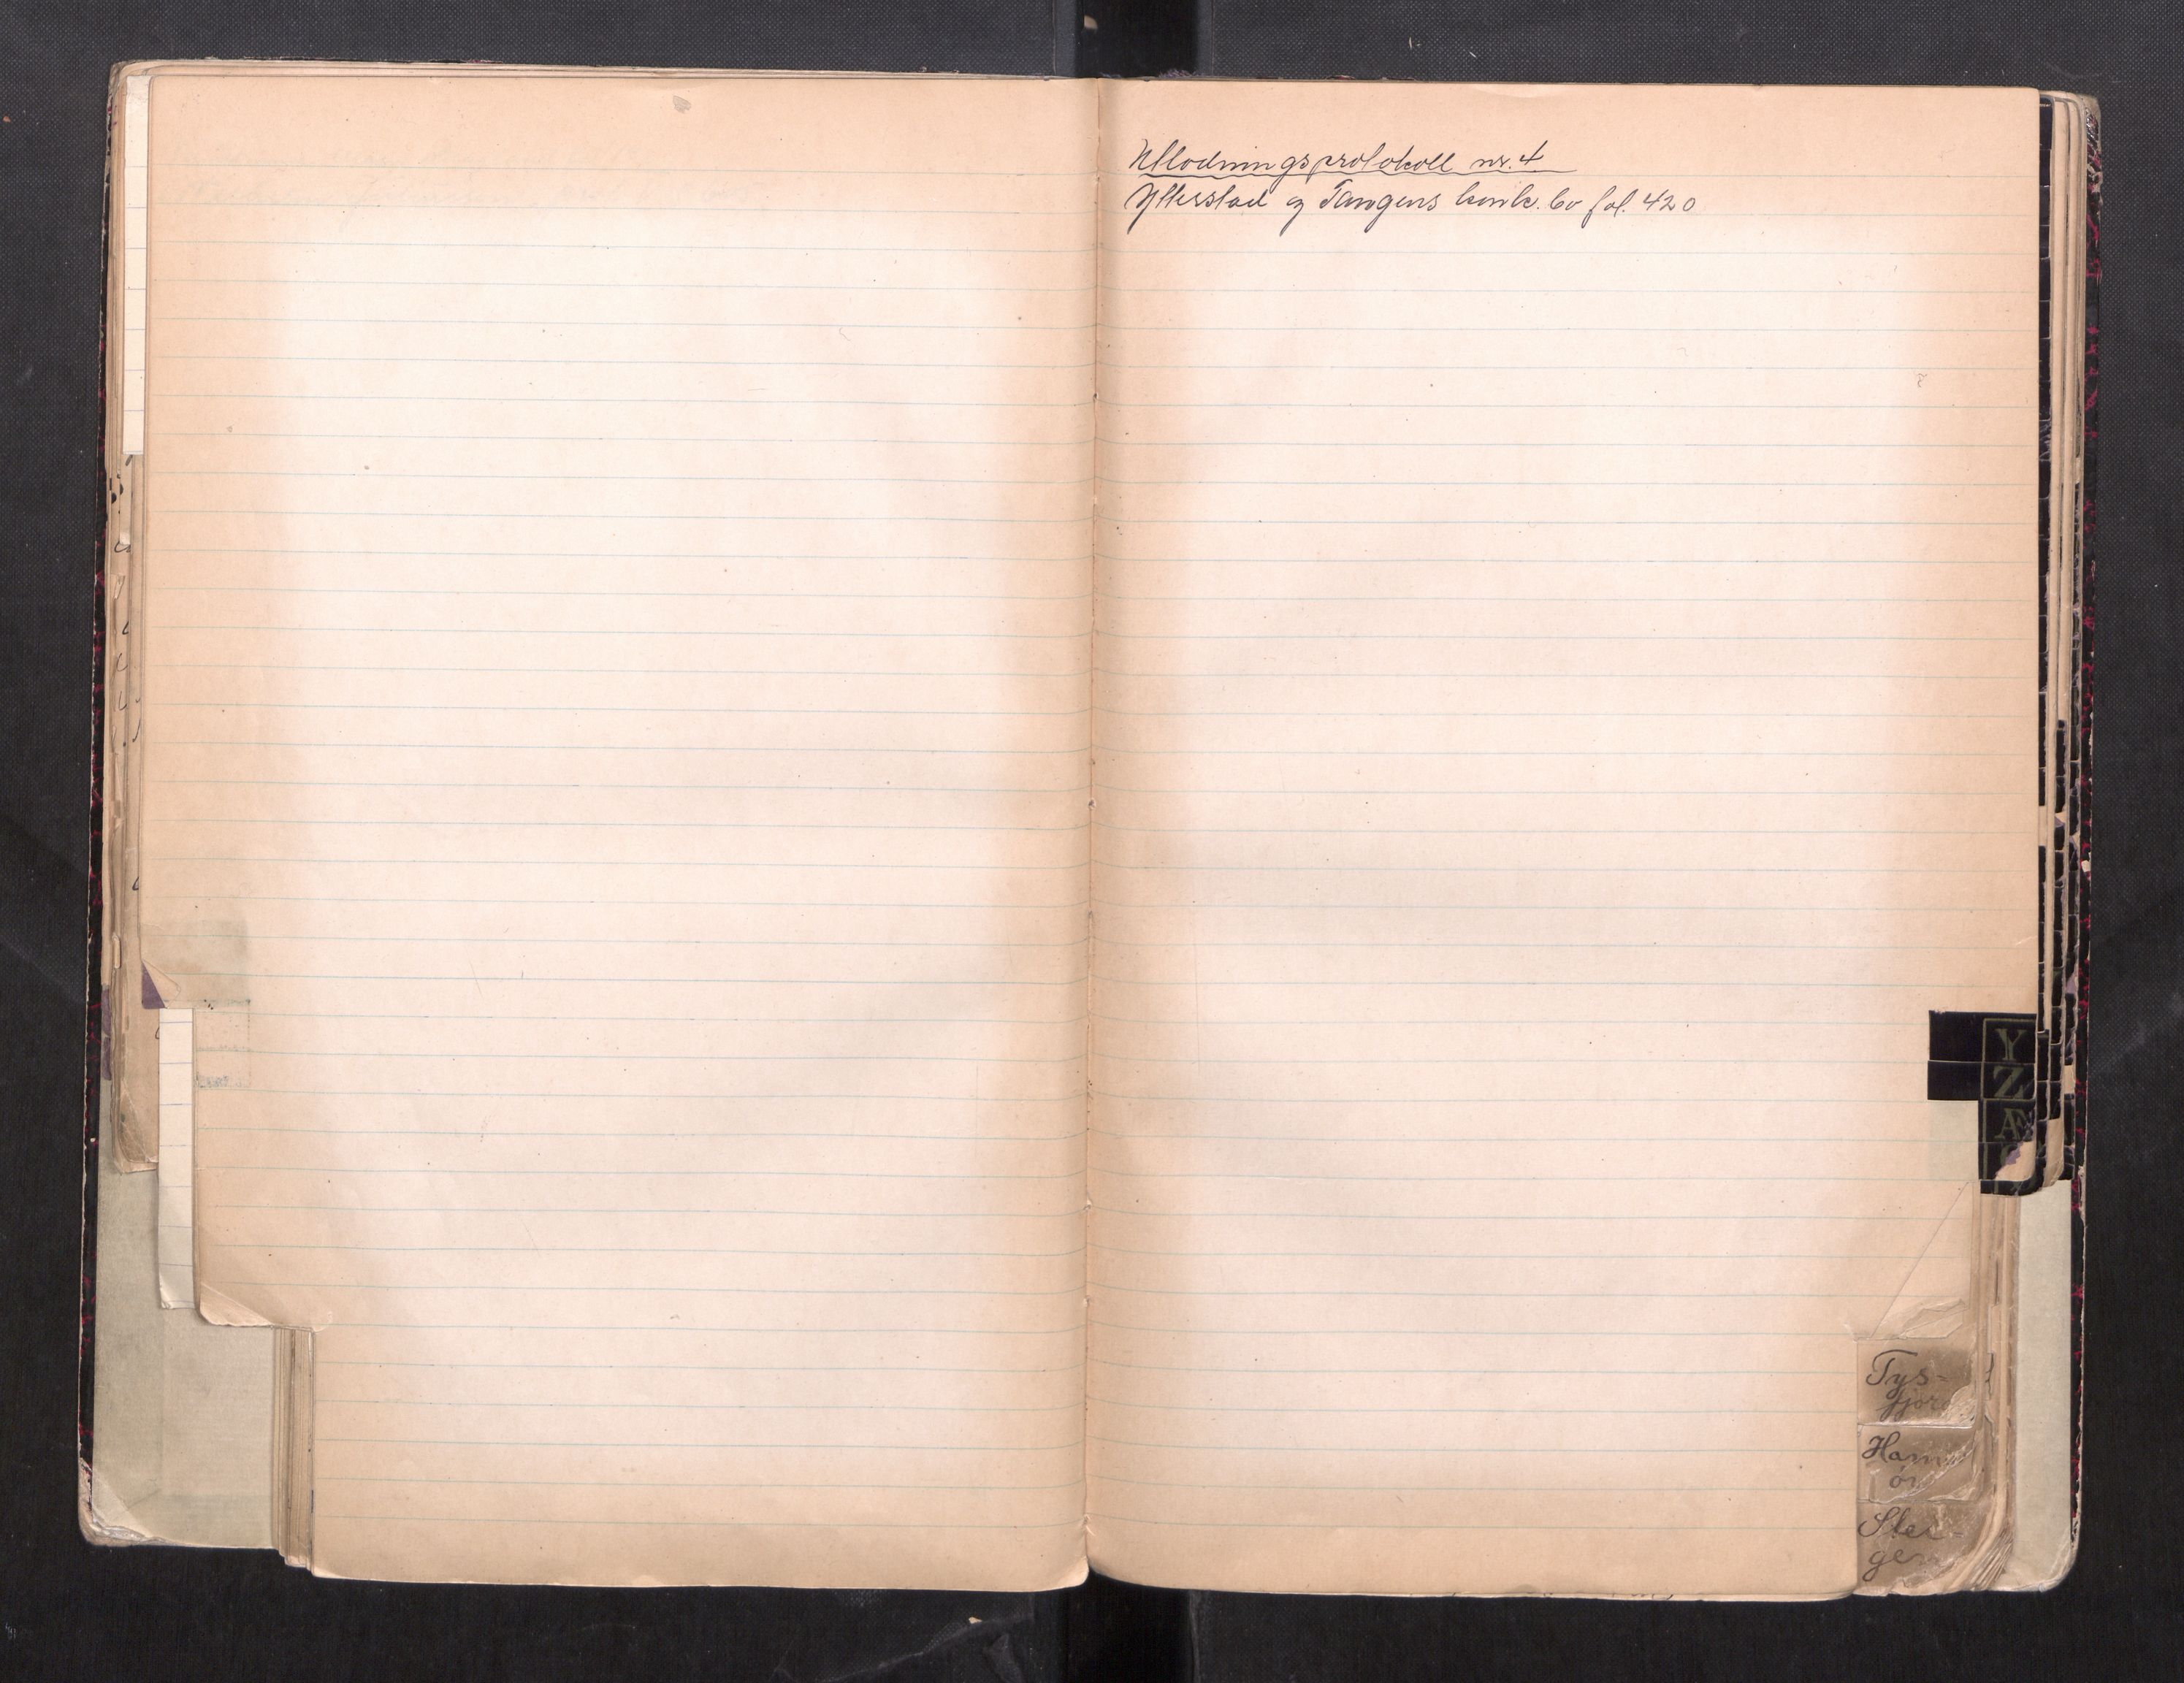 Utlodningsprotokoll nr. 4
Ytterstad og Tangens konk. bo fol. 420
Y
Z
Æ
Tys-
fjord
Ham
ør
Stei-
gen